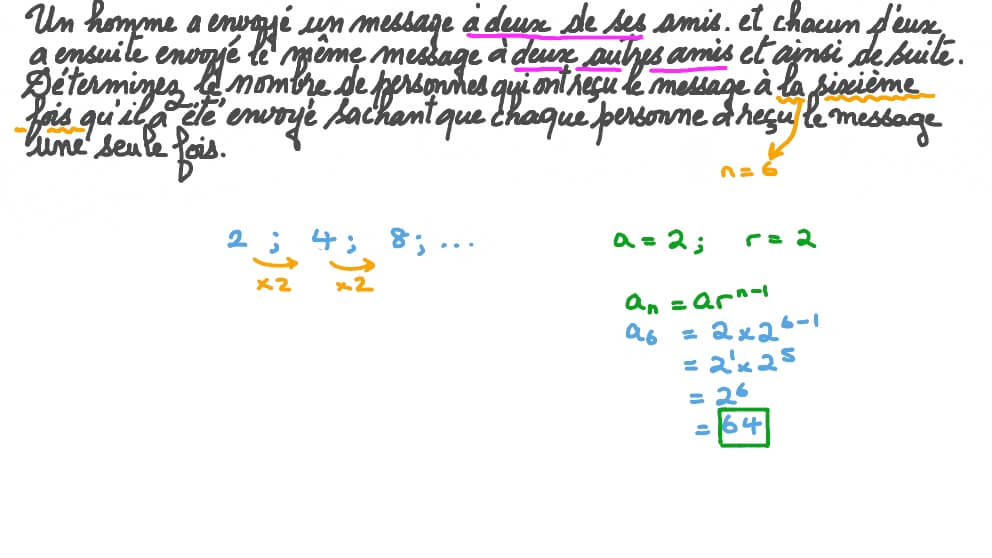 Un homme a envoyé un message à deux de ses amis. et chacun d'eux
a ensuite envoyé le même message à deux autres amis et ainsi de suite.
Déterminez le nombre de personnes qui ont reçu le message à la sixième
fois qu'il a été envoyé sachant que chaque personne a reçu le message
une seule fois.
n = 6
2 ; 4 ; 8 ; ...
×2 ×2
a = 2 ; r = 2
aₙ = arⁿ⁻¹
a₆ = 2 × 2⁶⁻¹
= 2¹ × 2⁵
= 2⁶
= 64